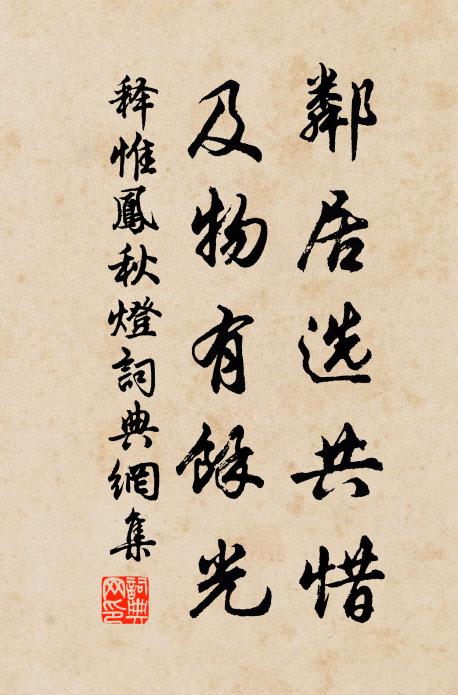 鄰居选共惜
及物有餘光
释惟鳳秋燈詞典網集
詞典網印